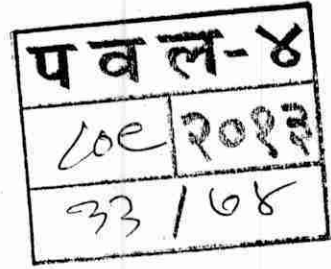 पवल-४
८०९ २०१३
३३ / ७४